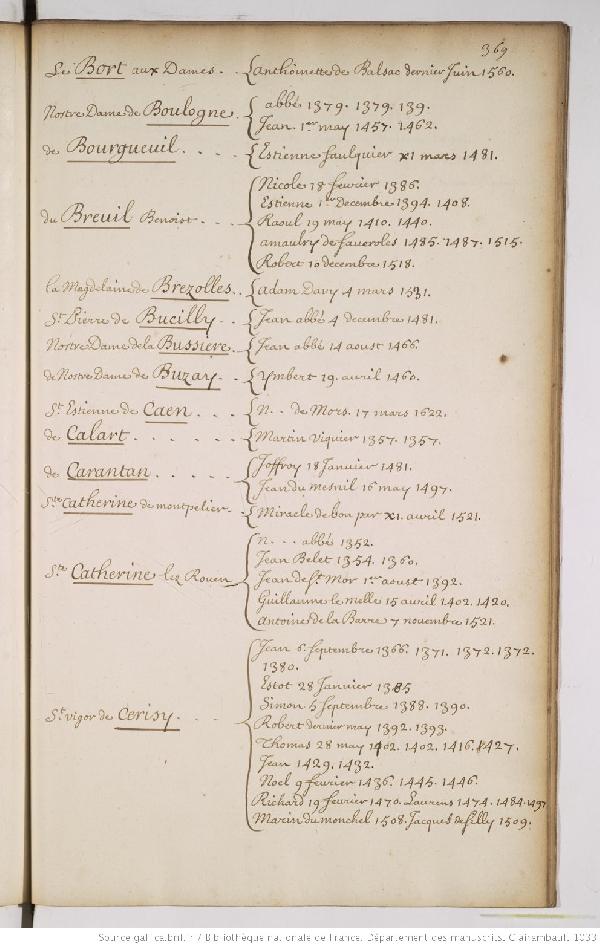 369
Le Bort aux Dames. . { anthoinette de Balsac dernier Juin 1560.
Nostre Dame de Boulogne. { abbé 1379. 1379. 139.
Jean. 1er may 1457. 1462.
de Bourgueuil. . . . { Estienne faulquier x1 mars 1481.
{ Nicole 18 fevrier 1386.
Estienne 1er Decembre 1394. 1408.
du Breuil Benoist. . . Raoul 19 may 1410. 1440.
amaulry de faveroles 1485. 1487. 1515.
Robert 10 decembre 1518.
la Magdelaine de Brezolles. . { adam Davy 4 mars 1531.
St. Pierre de Bucilly. . { Jean abbé 4 decembre 1481.
Nostre Dame de la Bussiere. { Jean abbé 14 aoust 1466.
de Nostre Dame de Buzay. . { ymbert 19. avril 1460.
St. Estienne de Caen . . . { N. . . de Mors. 17 mars 1622.
de Calart. . . . . . { Martin Viquier 1357. 1357.
de Carantan. . . . . { Joffroy 18 Janvier 1481.
Jean du mesnil 16 may 1497.
Ste Catherine de montpelier. { Miracle de bon par x1. avril 1521.
{ n. . . . abbé 1352.
Jean Belet 1354. 1360.
Ste Catherine lez Rouen Jean de St. Mor 1er aoust 1392.
Guillaume le melle 15 avril 1402. 1420.
antoine de la Barre 7 novembre 1521.
{ Jean 6. septembre 1366. 1371. 1372. 1372.
1380.
Estot 28 Janvier 1385
Simon 5 septembre 1388. 1390.
St. vigor de Cerisy. . . . Robert dernier may 1392. 1393.
Thomas 28 may 1402. 1402. 1416. 1427.
Jean 1429. 1432.
Noel 9 fevrier 1436. 1445. 1446.
Richard 19 fevrier 1470. Laurens 1474. 1484. 1497
Marin du monchel 1508. Jacques de silly 1509.
Source gallica.bnf.fr / Bibliothèque nationale de France. Département des manuscrits. Clairambault. 1033